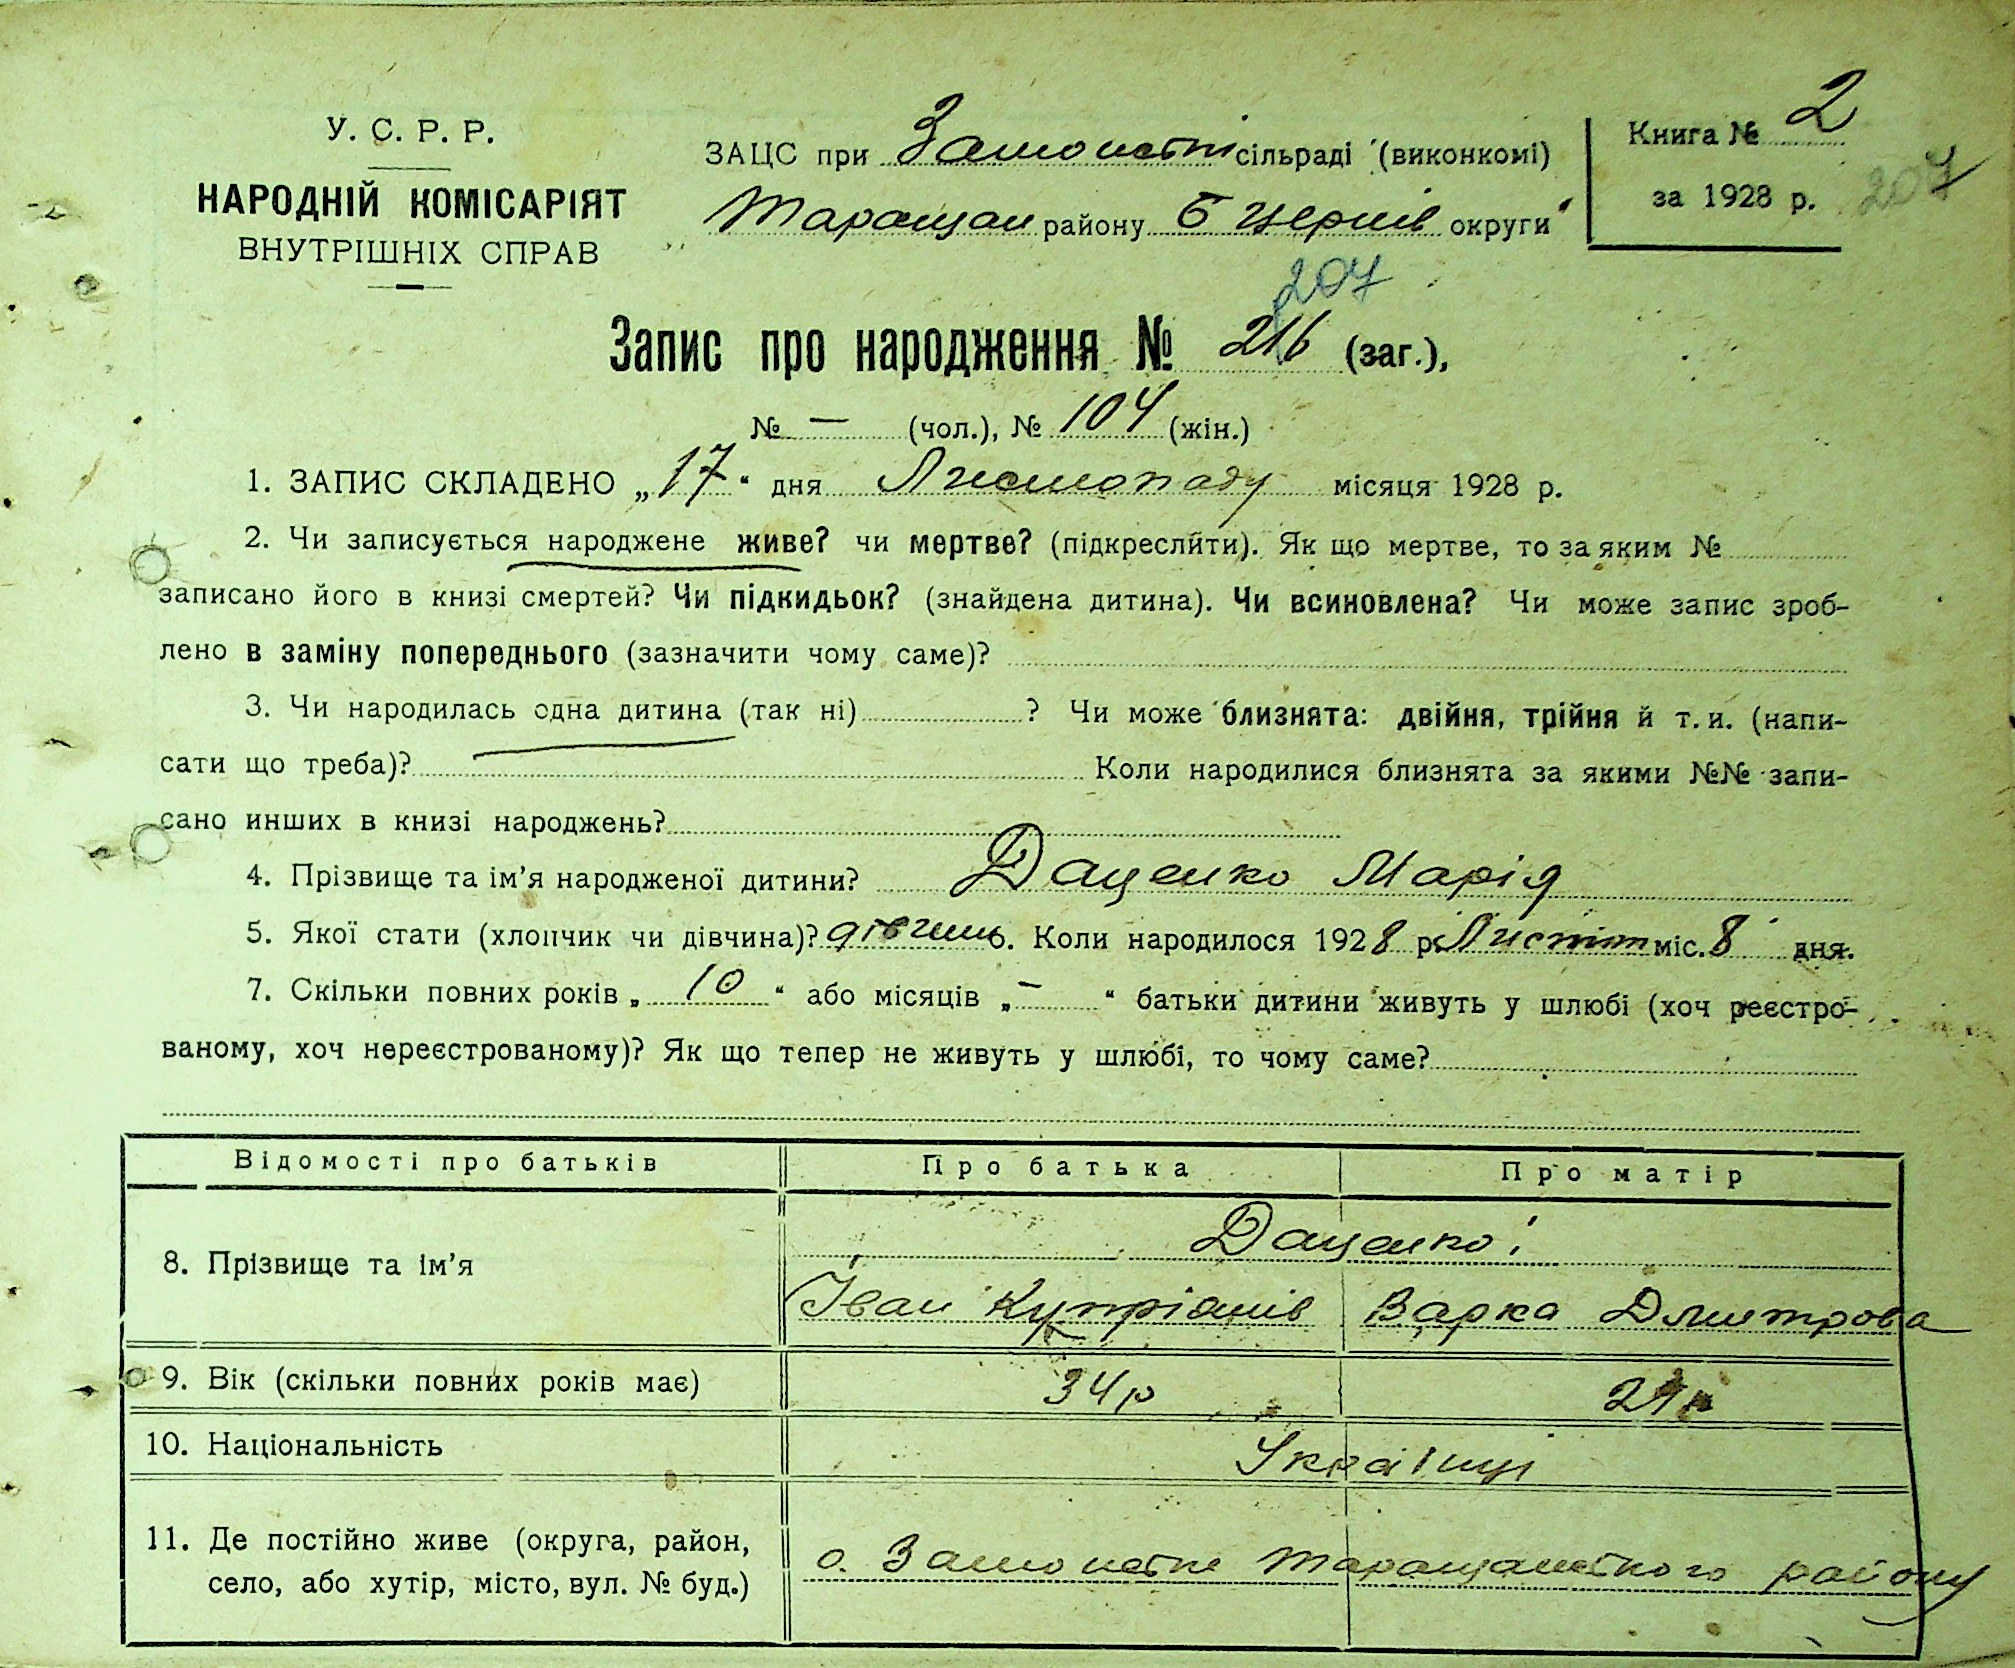 У. С. Р. Р.
НАРОДНІЙ КОМІСАРІЯТ
ВНУТРІШНІХ СПРАВ
ЗАЦС при сільраді (виконкомі)
Таращан району Б Церків округи
Книга № 2
за 1928 р.
207
207
Запис про народження № 216 (заг.),
№ — (чол.), № 104 (жін.)
1. ЗАПИС СКЛАДЕНО „17“ дня Листопаду місяця 1928 р.
2. Чи записується народжене живе? чи мертве? (підкреслити). Як що мертве, то за яким №
записано його в книзі смертей? Чи підкидьок? (знайдена дитина). Чи всиновлена? Чи може запис зроб-
лено в заміну попереднього (зазначити чому саме)?
3. Чи народилась одна дитина (так ні) ? Чи може близнята: двійня, трійня й т. и. (напи-
сати що треба)? Коли народилися близнята за якими №№ запи-
сано инших в книзі народжень?
4. Прізвище та ім’я народженої дитини? Даценко Марія
5. Якої стати (хлопчик чи дівчина)? Коли народилося 1928 р. міс. 8 дня.
7. Скільки повних років „10“ або місяців „—“ батьки дитини живуть у шлюбі (хоч реєстро-
ваному, хоч нереєстрованому)? Як що тепер не живуть у шлюбі, то чому саме?
Відомості про батьків Про батька Про матір
8. Прізвище та ім’я Даценко і
Іван Купріянів Варка Дмитрова
9. Вік (скільки повних років має) 34 р
10. Національність Українці
11. Де постійно живе (округа, район,
село, або хутір, місто, вул. № буд.) Таращанського району